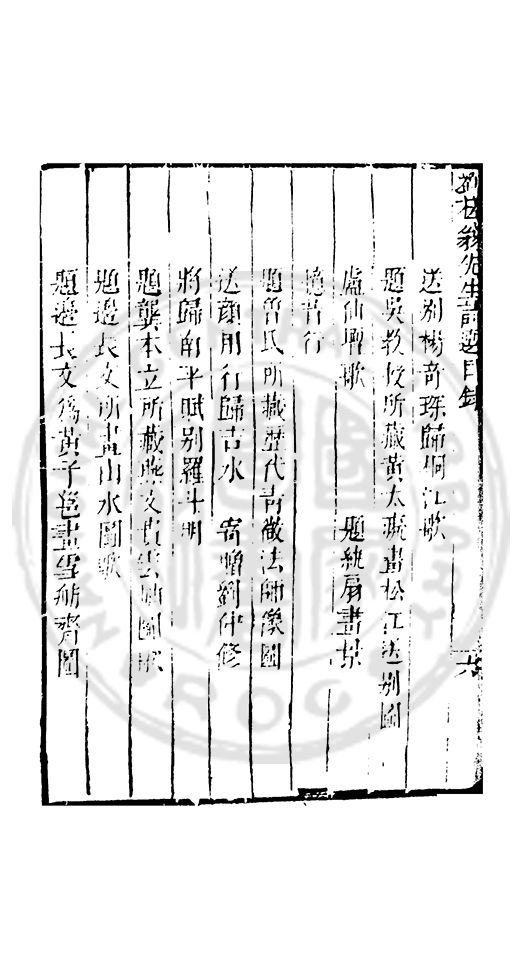 劉槎翁先生詩選目錄 六
送別楊奇琛歸桐江歌
題吳教授所藏黃太癡畫松江送別圖
盧仙壇歌 題紈扇畫景
憶昔行
題曾氏所藏歷代清微法師像圖
送顏用行歸吉水 寄贈劉仲修
將歸南平賦別羅斗明
題龔本立所藏燕文貴雲山圖歌
題邊長文所畫山水圖歌
題邊長文為黃子邕畫雪舫齋圖